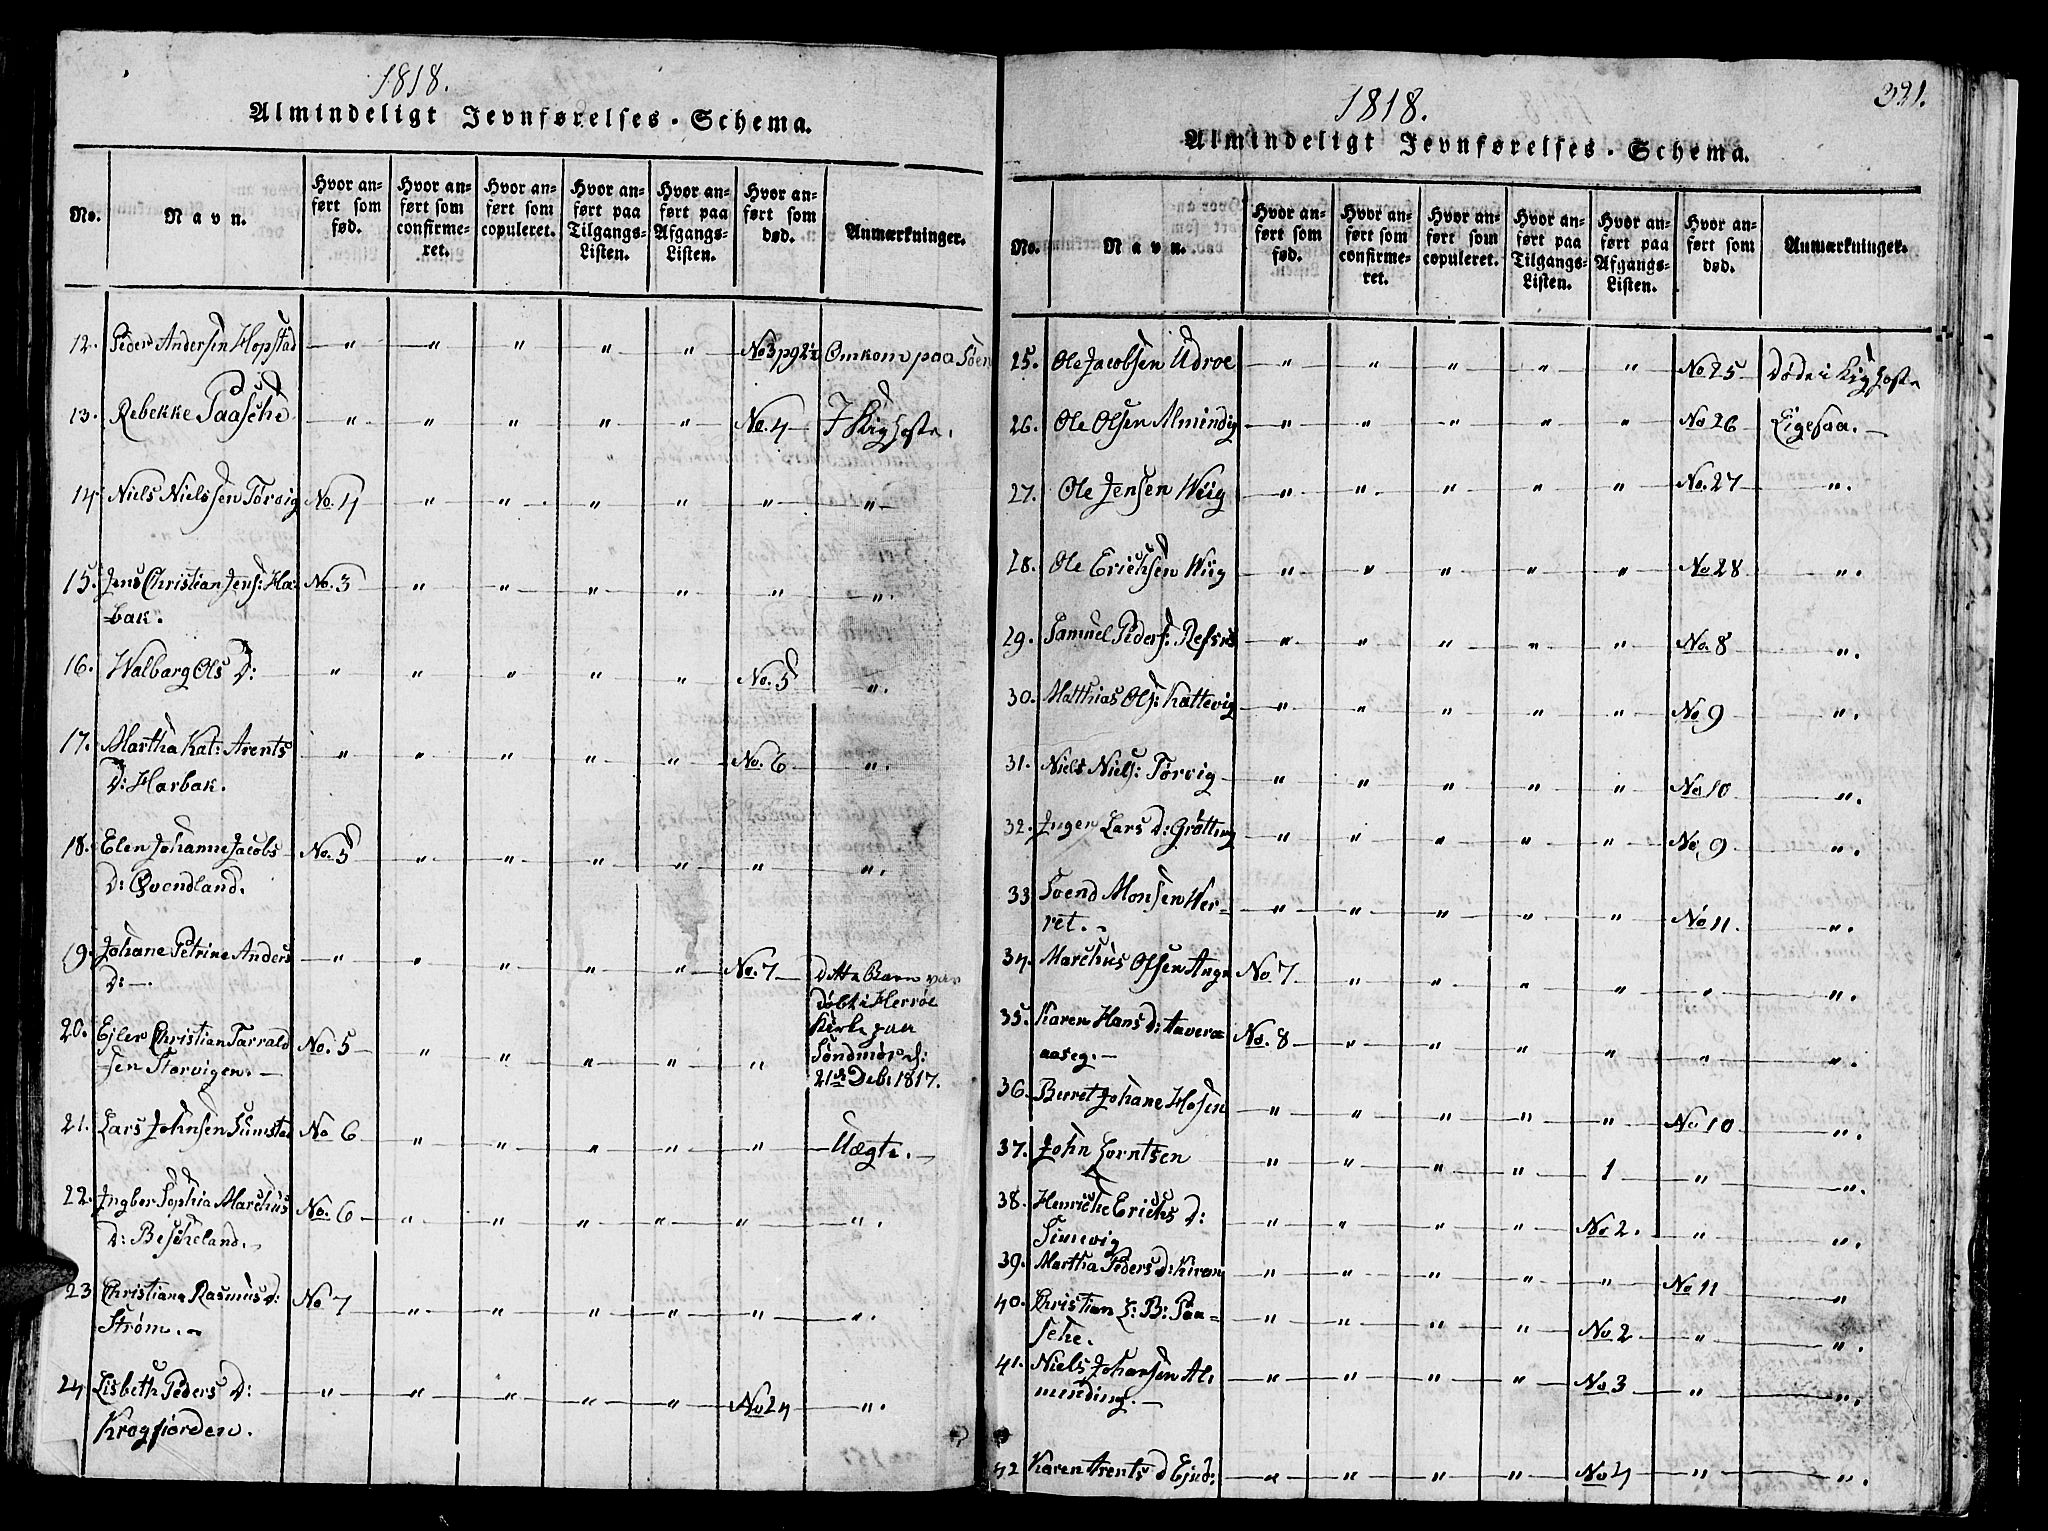 1818.
Almindeligt Jevnførelses-Schema.
No.
Navn.
Hvor anført som fød.
Hvor anført som confirmeret.
Hvor anført som copuleret.
Hvor anført paa Tilgangs-Listen.
Hvor anført paa Afgangs-Listen.
Hvor anført som død.
Anmærkninger.
12. Peder Andersen Hopstad " " " " " No 3 pg 2 Omkom paa Søen
13. Rebekke Paasche " " " " " No. 4 I Kighoste.
14. Niels Nielssen Torvig No. 4 " " " " " "
15. Jens Christian Jens: Har No. 3 " " " " " ".
bak.
16. Walbarg Ols D: " " " " " No. 5 ".
17. Martha Kat: Arents " " " " " No. 6 ".
D: Harbak.
18. Elen Johanne Jacobs No. 5 " " " " " ".
D: Qvendland.
19. Johane Petrine Anders " " " " " No. 7 Dette Barn var
D: døbt i Herrøe
Kirke paa
Søndmør d:
21de Deb. 1817.
20. Ejler Christian Tarrald No. 5 " " " " "
sen Storvigen.
21. Lars Johnsen Sumstad No 6 " " " " " Uægte.
22. Ingber Sophia Marchus No. 6 " " " " " ".
D: Bescheland.
23 Christiana Rasmus D: No 7 " " " " " ".
Strøm.
24 Lisbeth Peders D: " " " " " No 24 ".
Kragfjorden.
321.
1818.
Almindeligt Jevnførelses-Schema.
No.
Navn.
Hvor anført som fød.
Hvor anført som confirmeret.
Hvor anført som copuleret.
Hvor anført paa Tilgangs-Listen.
Hvor anført paa Afgangs-Listen.
Hvor anført som død.
Anmærkninger.
25. Ole Jacobsen Udroe " " " " " No 25 Døde i Kighoste
26. Ole Olsen Almindig " " " " " No 26 Ligesaa.
27. Ole Jensen Wiig " " " " " No. 27 ".
28. Ole Erichsen Wiig " " " " " No 28 ".
29. Samuel Peders: Refsnes " " " " " No. 8 ".
30. Matthias Ols: Kattevig " " " " " No 9 ".
31. Niels Niels: Torvig " " " " " No 10 ".
32. Inger Lars D: Grøtting " " " " " No 9 ".
33 Svend Monsen Wer- " " " " " No 11. ".
ret.
34. Marchus Olsen Angn No 7 " " " " " ".
35. Karen Hans D: Havera No. 8 " " " " " ".
aaseg.
36. Berret Johane Hosen " " " " " No 10 ".
37. John Lorntsen " " " " 1 " ".
38. Henriche Erichs D: " " " " No 2. " ".
Simevig
39. Martha Peders D: Kiran " " " " " No 11 "
40. Christian L: B: Paa= " " " " No 2 " ".
sche.
41. Niels Johansen Al- " " " " No 3 " ".
minding.
42 Karen Arents D Ejnd: " " " " No 4 " ".